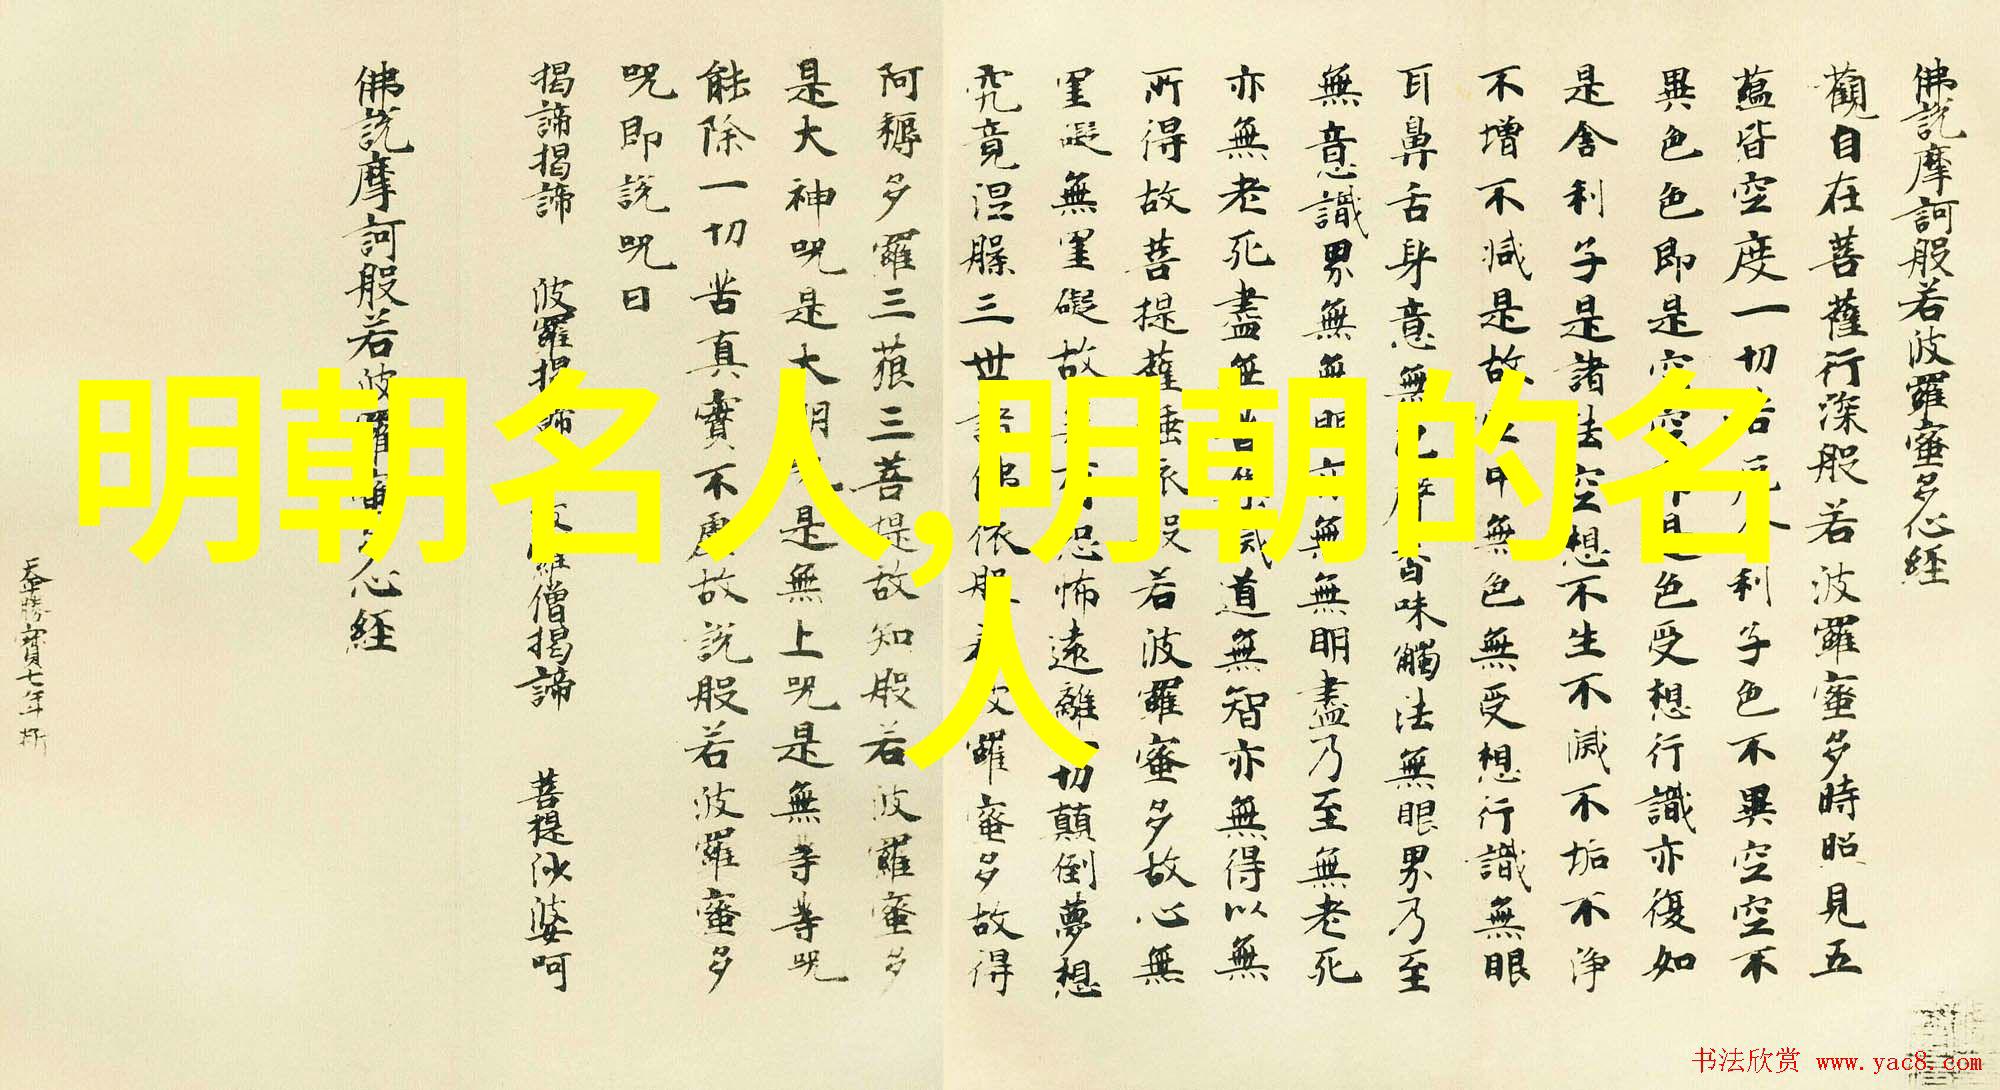 明朝名人,明朝的名
人
佛説摩訶般若波羅蜜多心経
觀自在菩薩行深般若波羅蜜多時照見五
蘊皆空度一切苦厄舍利子色不異空空不
異色色即是空空即是色受想行識亦復如
是舍利子是諸法空想不生不滅不垢不淨
不增不減是故空中無色無受想行識無眼
耳鼻舌身意無色聲香味觸法無眼界乃至
無意識界無無明亦無無明盡乃至無老死
亦無老死盡無苦集滅道無智亦無得以無
所得故菩提薩埵依般若波羅蜜多故心無
罣礙無罣礙故無有恐怖遠離一切顛倒夢想
究竟涅槃三世諸佛依般若波羅蜜多故得
阿耨多羅三藐三菩提故知般若波羅蜜多
是大神咒是大明咒是無上咒是無等等咒
能除一切苦真實不虛故説般若波羅蜜多
咒即説咒曰
揭諦揭諦 波羅揭諦 波羅僧揭諦 菩提莎婆呵
佛説摩訶般若波羅蜜多心経
勝寶七年
书法欣赏 www.yac8.com